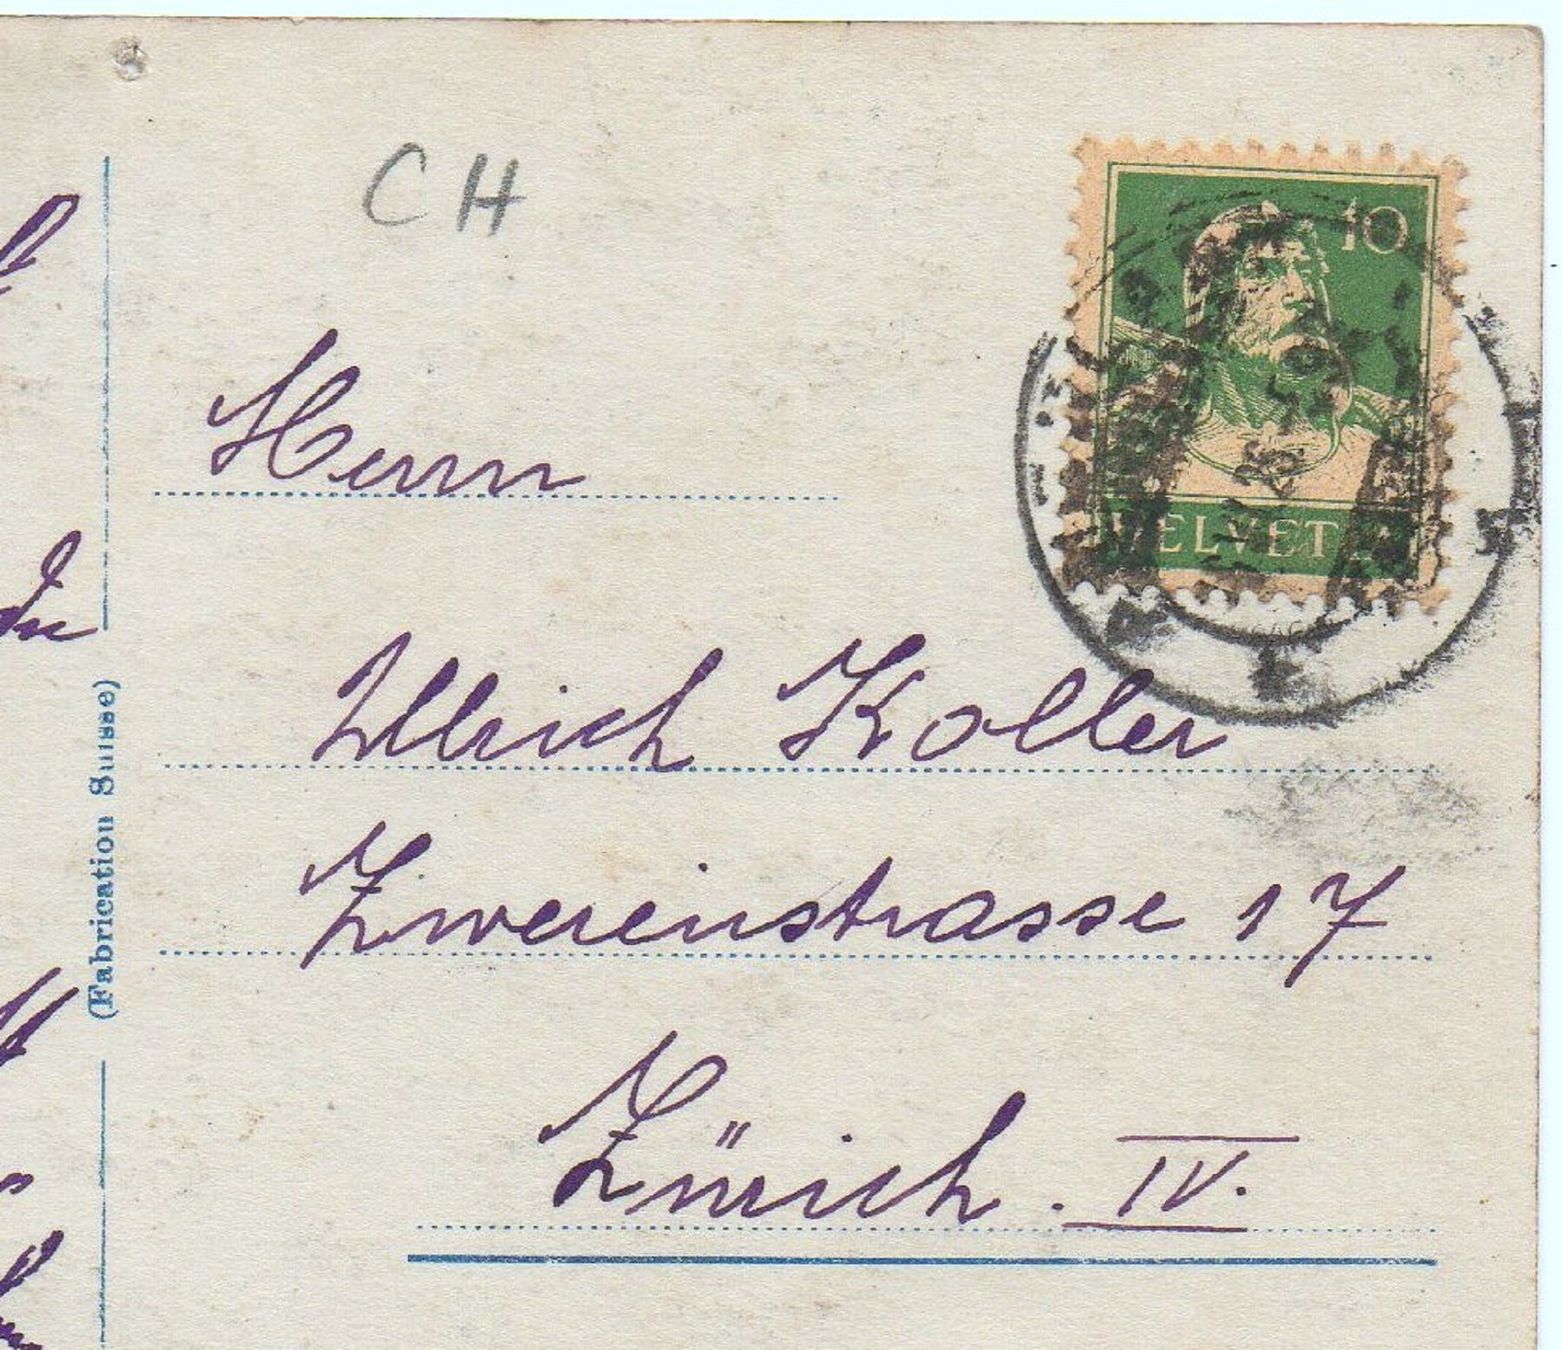 CH
10
HELVETIA
Herrn
Ullrich Koller
Zwereinstrasse 17
Zürich. IV.
(Fabrication Suisse)